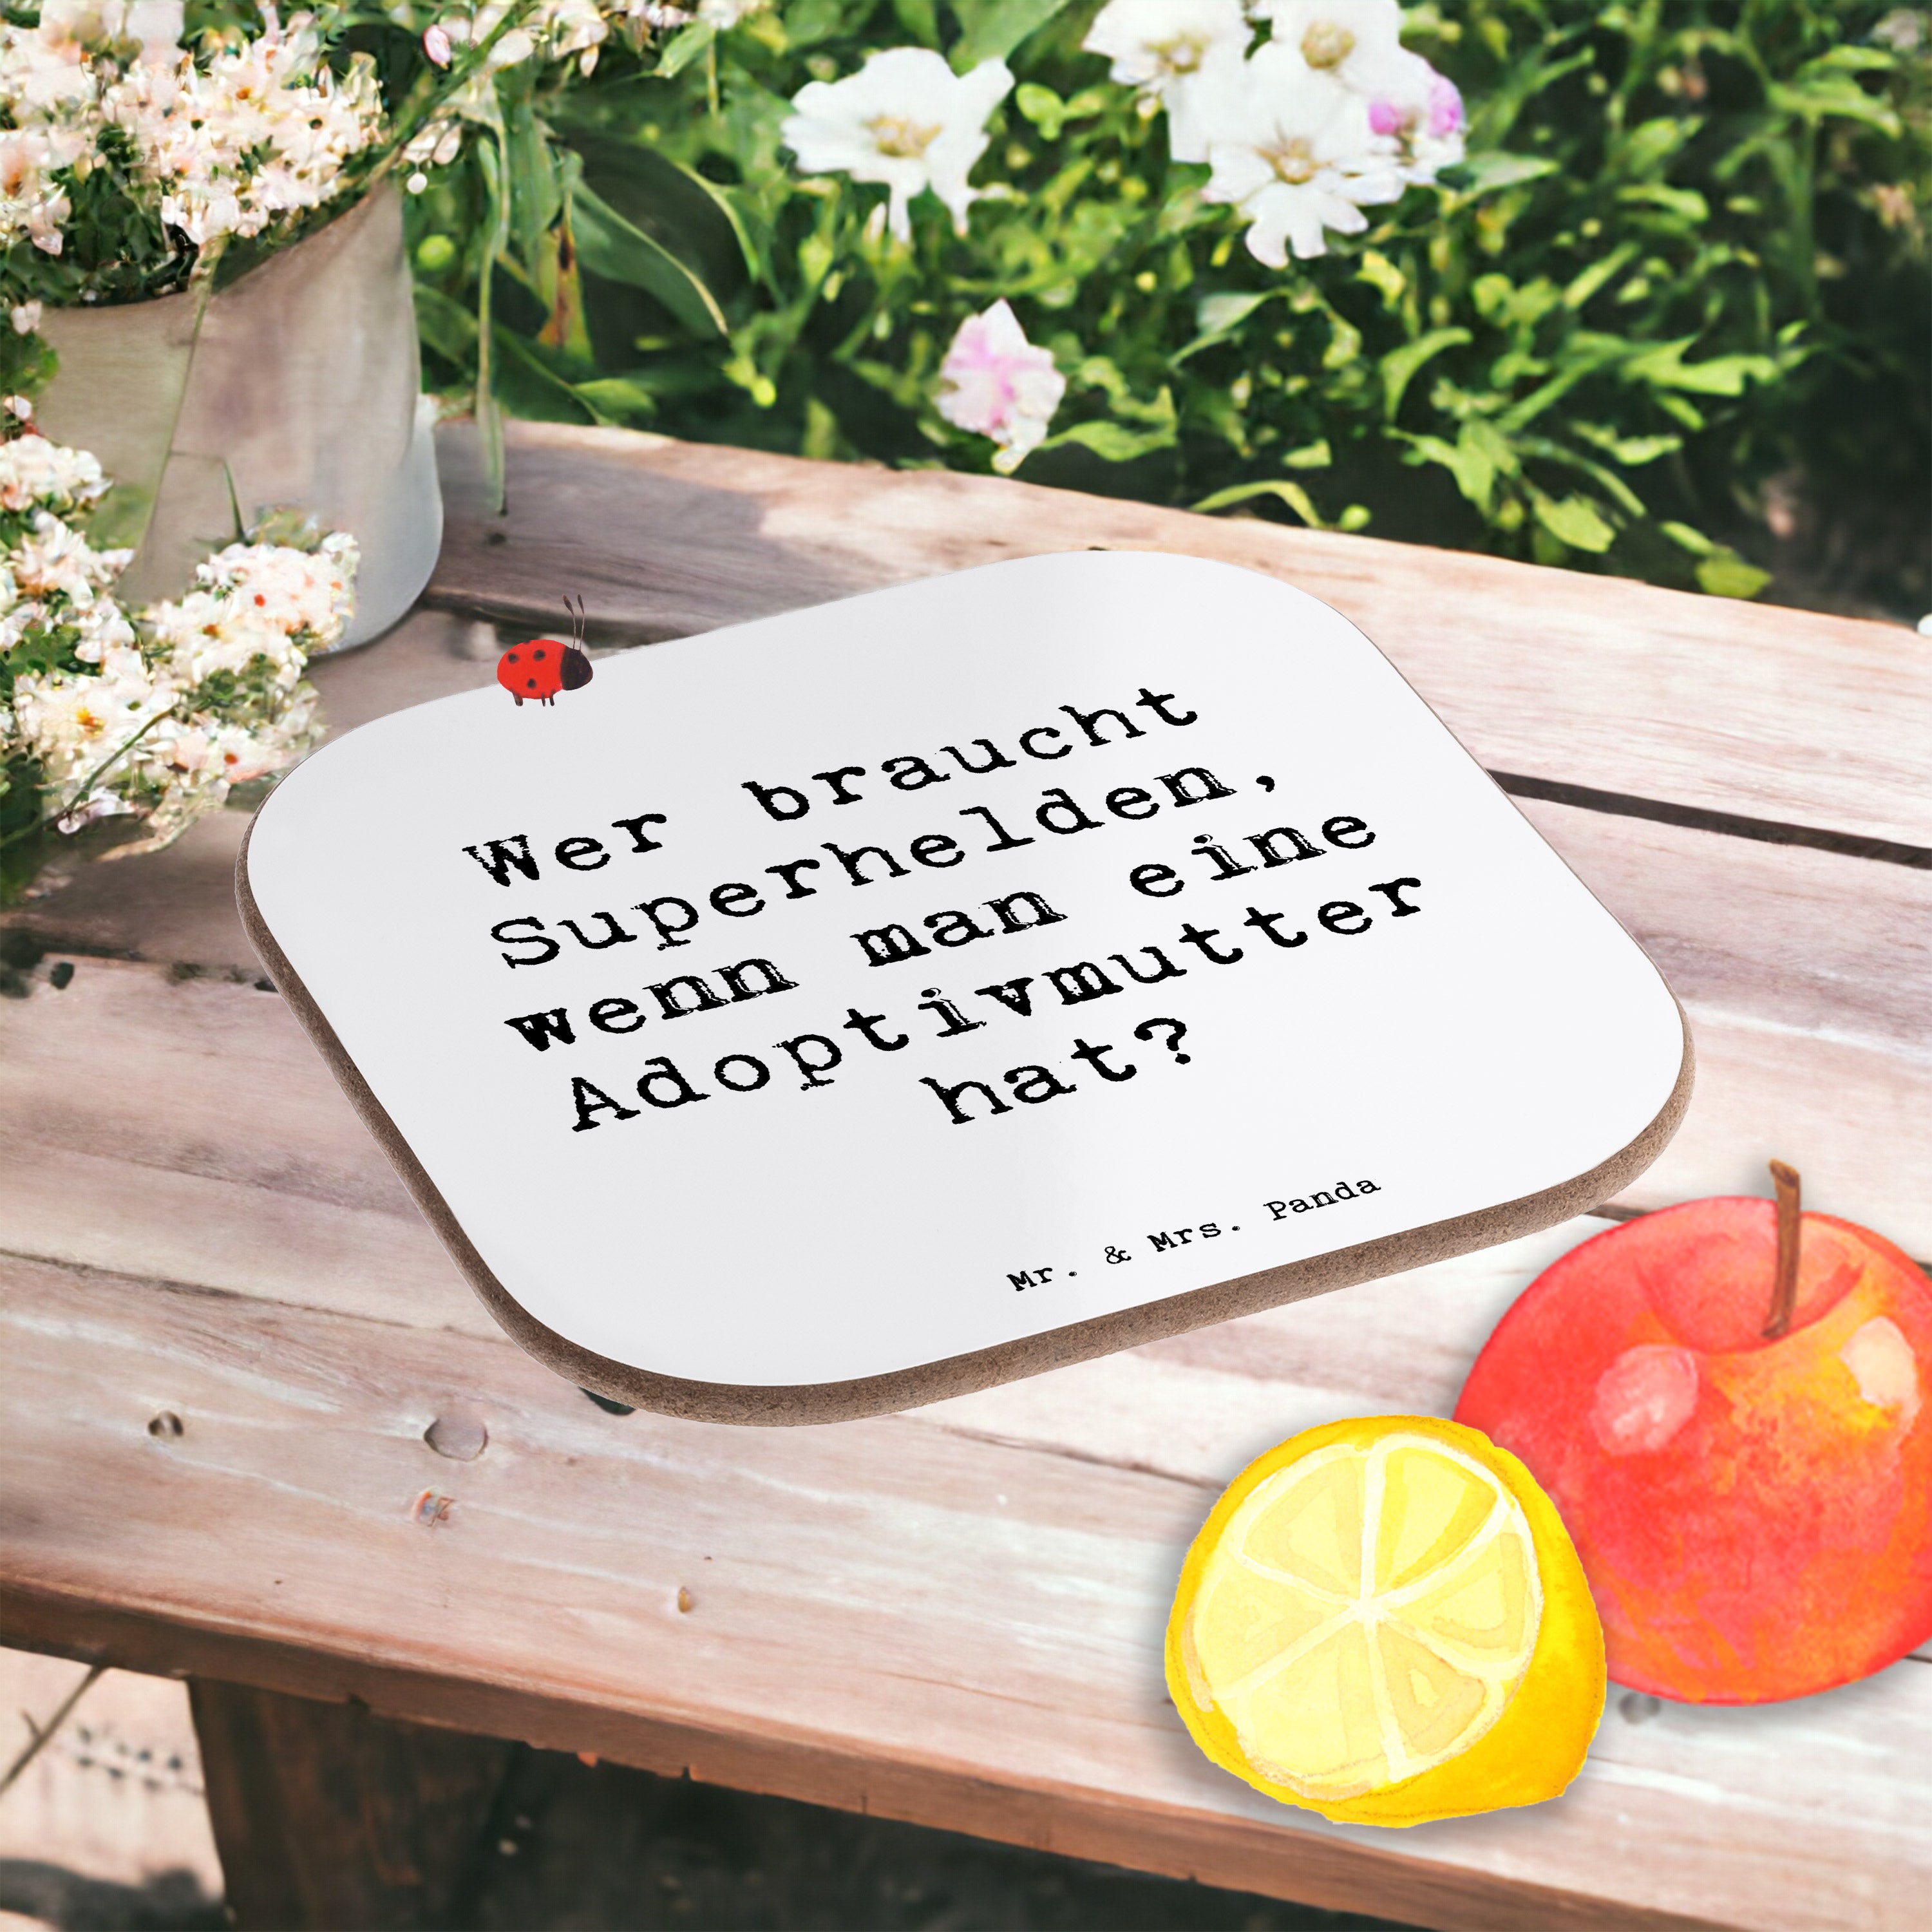 Wer braucht
Superhelden,
wenn man eine
Adoptivmutter
hat?
Mr. & Mrs. Panda